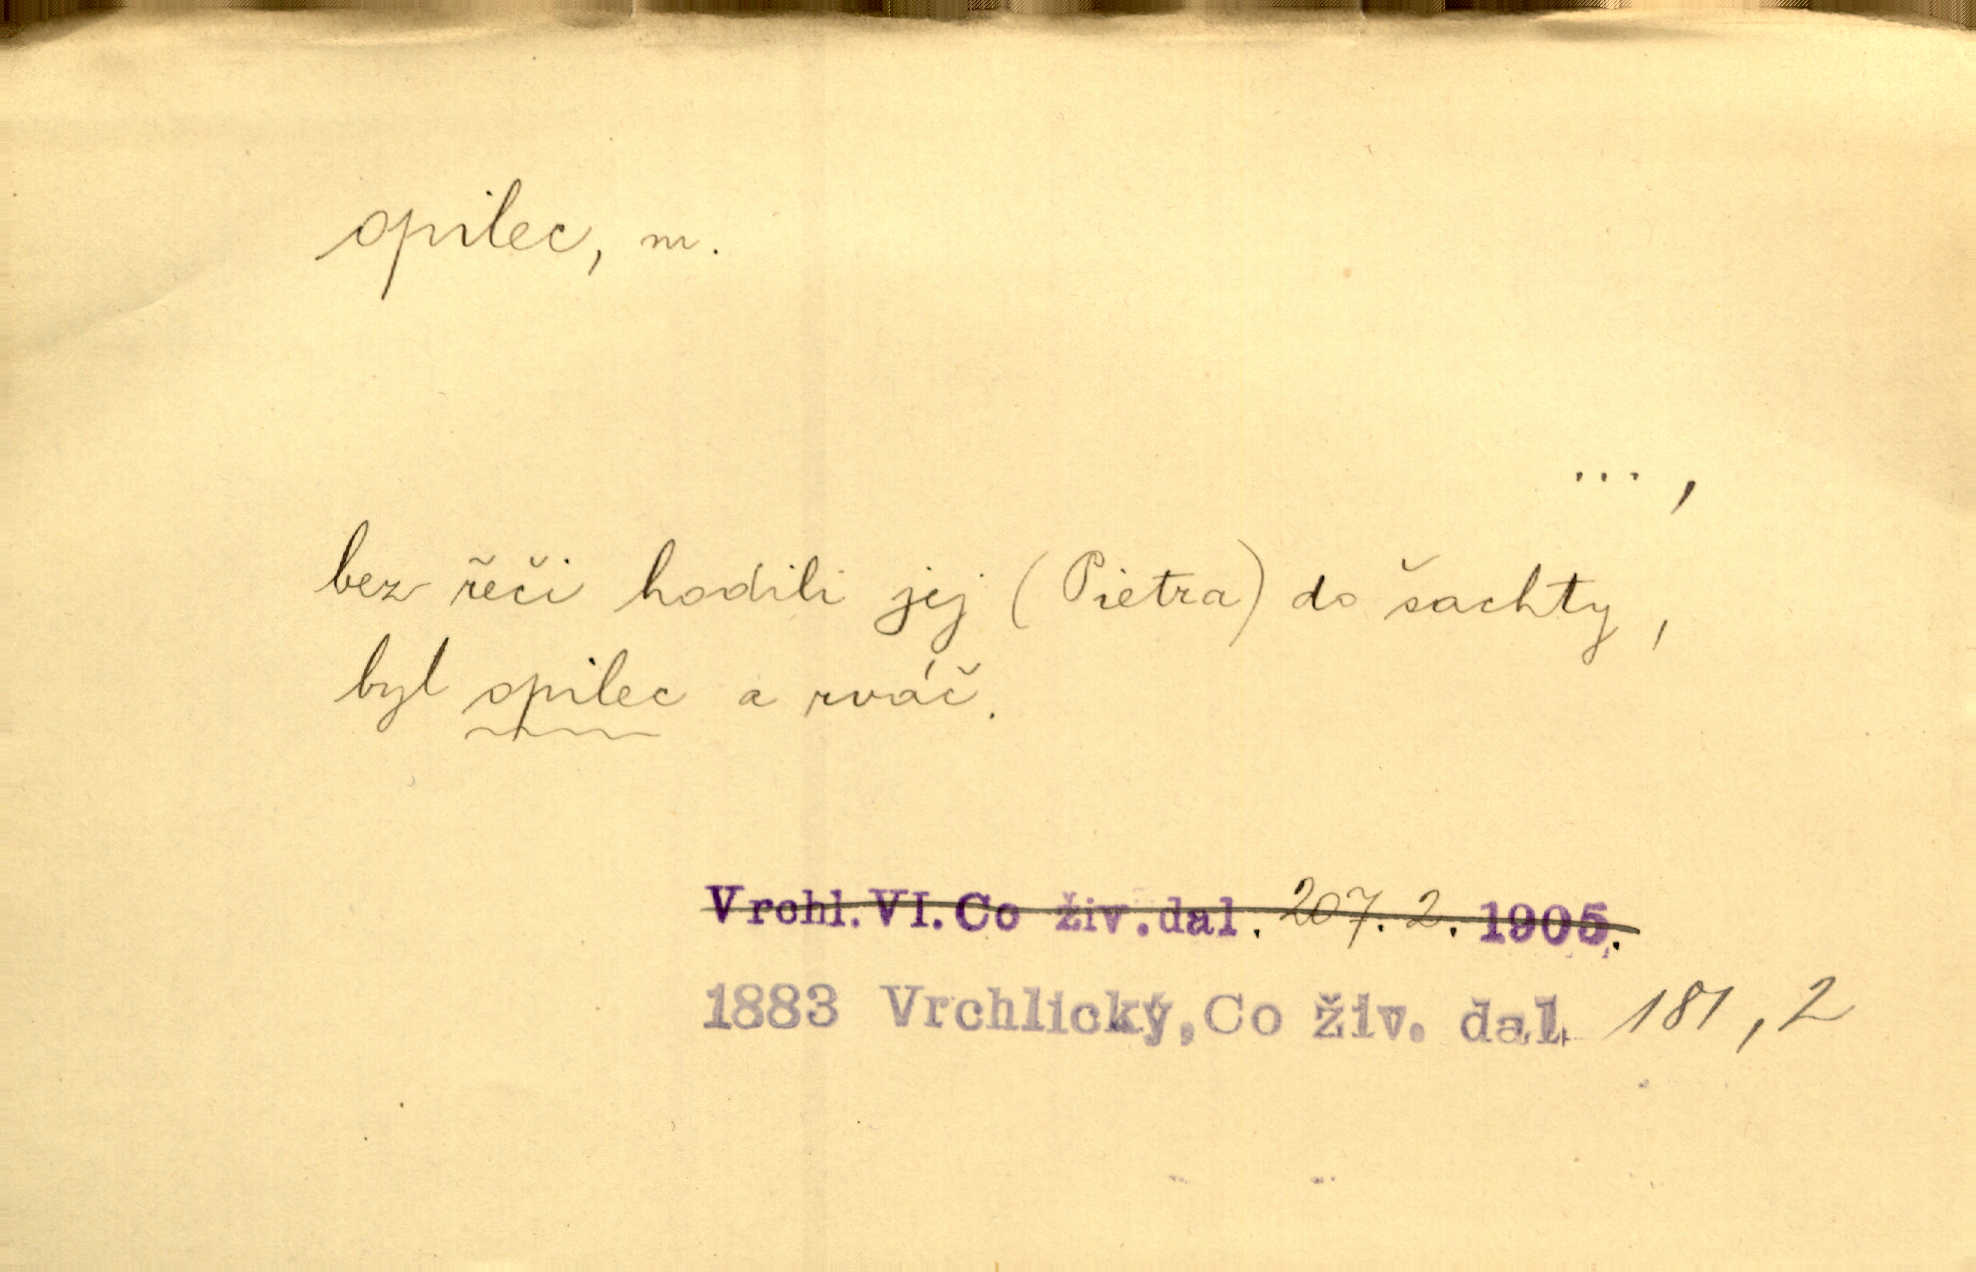 opilec, m.
... ,
bez řeči hodili jej (Pietra) do šachty,
byl opilec a rváč.
Vrchl. VI. Co živ. dal. 207. 2. 1905.
1883 Vrchlický, Co živ. dal. 181, 2